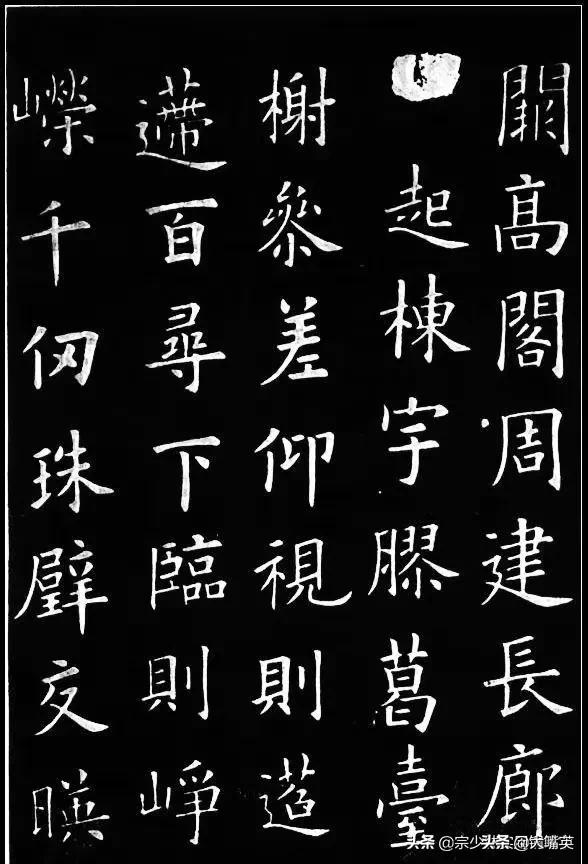 闕高閣周建長廊
起棟宇膠葛臺
榭參差仰視則迢
遰百尋下臨則崢
嶸千仞珠璧交暎
头条 @宗少头条 @铁嘴英